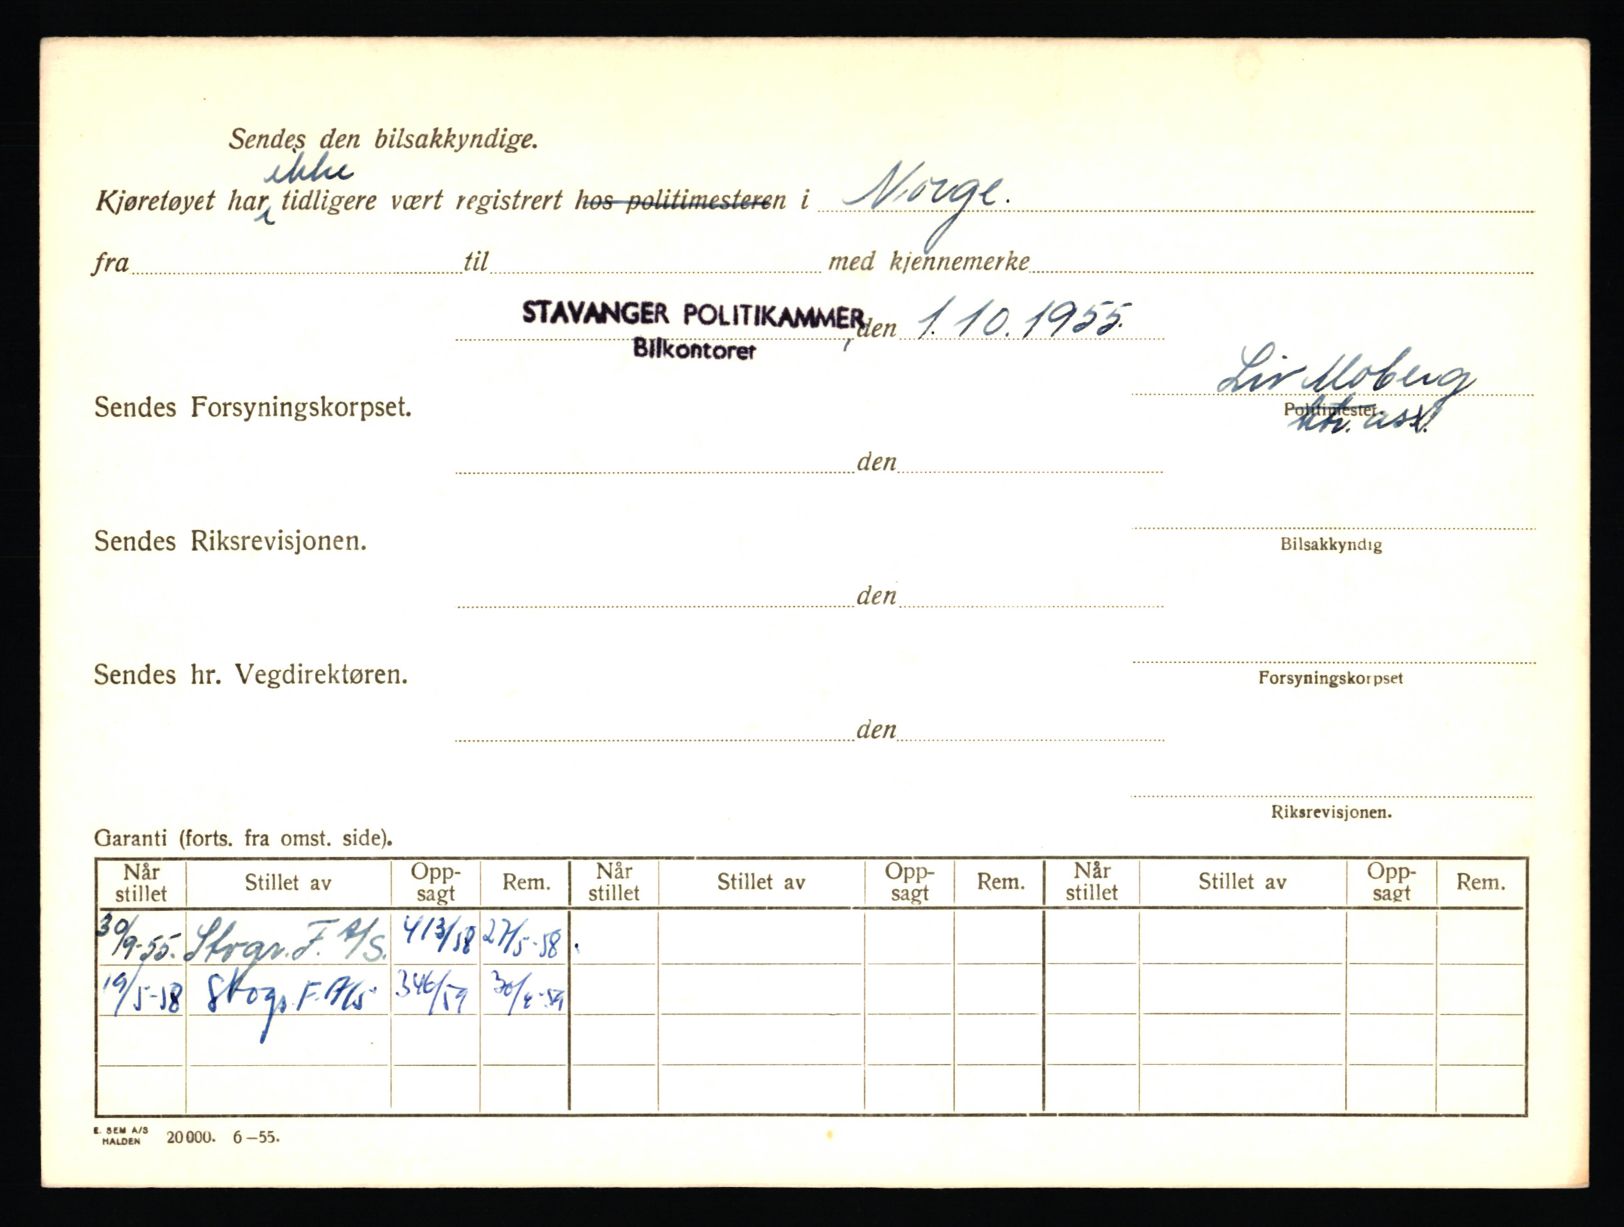 Sendes den bilsakkyndige.
ikke
Kjøretøyet har tidligere vært registrert hos politimesteren i Norge.
fra til med kjennemerke
STAVANGER POLITIKAMMER, den 1.10.1955.
Bilkontoret
Liv Moberg
Sendes Forsyningskorpset. Politimester.
ktr. ass.
den
Sendes Riksrevisjonen. Bilsakkyndig
den
Sendes hr. Vegdirektøren. Forsyningskorpset
den
Riksrevisjonen.
Garanti (forts. fra omst. side).
Når stillet Stillet av Opp-sagt Rem. Når stillet Stillet av Opp-sagt Rem. Når stillet Stillet av Opp-sagt Rem.
30/9-55. Stvgr. F. A/S. 413/58 27/5-58
19/5-58 F. A/S 346/59
E. SEM A/S
HALDEN 20000. 6-55.